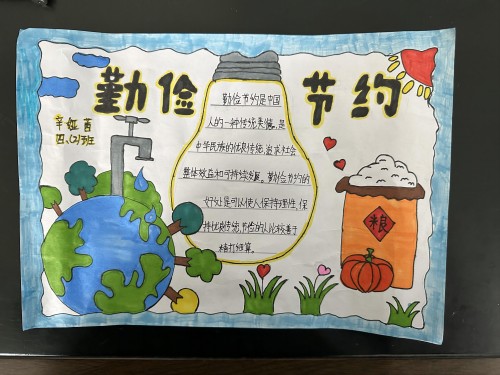 勤俭节约
辛娅酉
四、(2)班
勤俭节约是中国
人的一种传统美德,是
中华民族的优良传统,追求社会
整体效益和可持续发展。勤俭节约的
好处是可以使人保持理性,保
持优良传统,节俭的人比较善于
精打细算。
粮